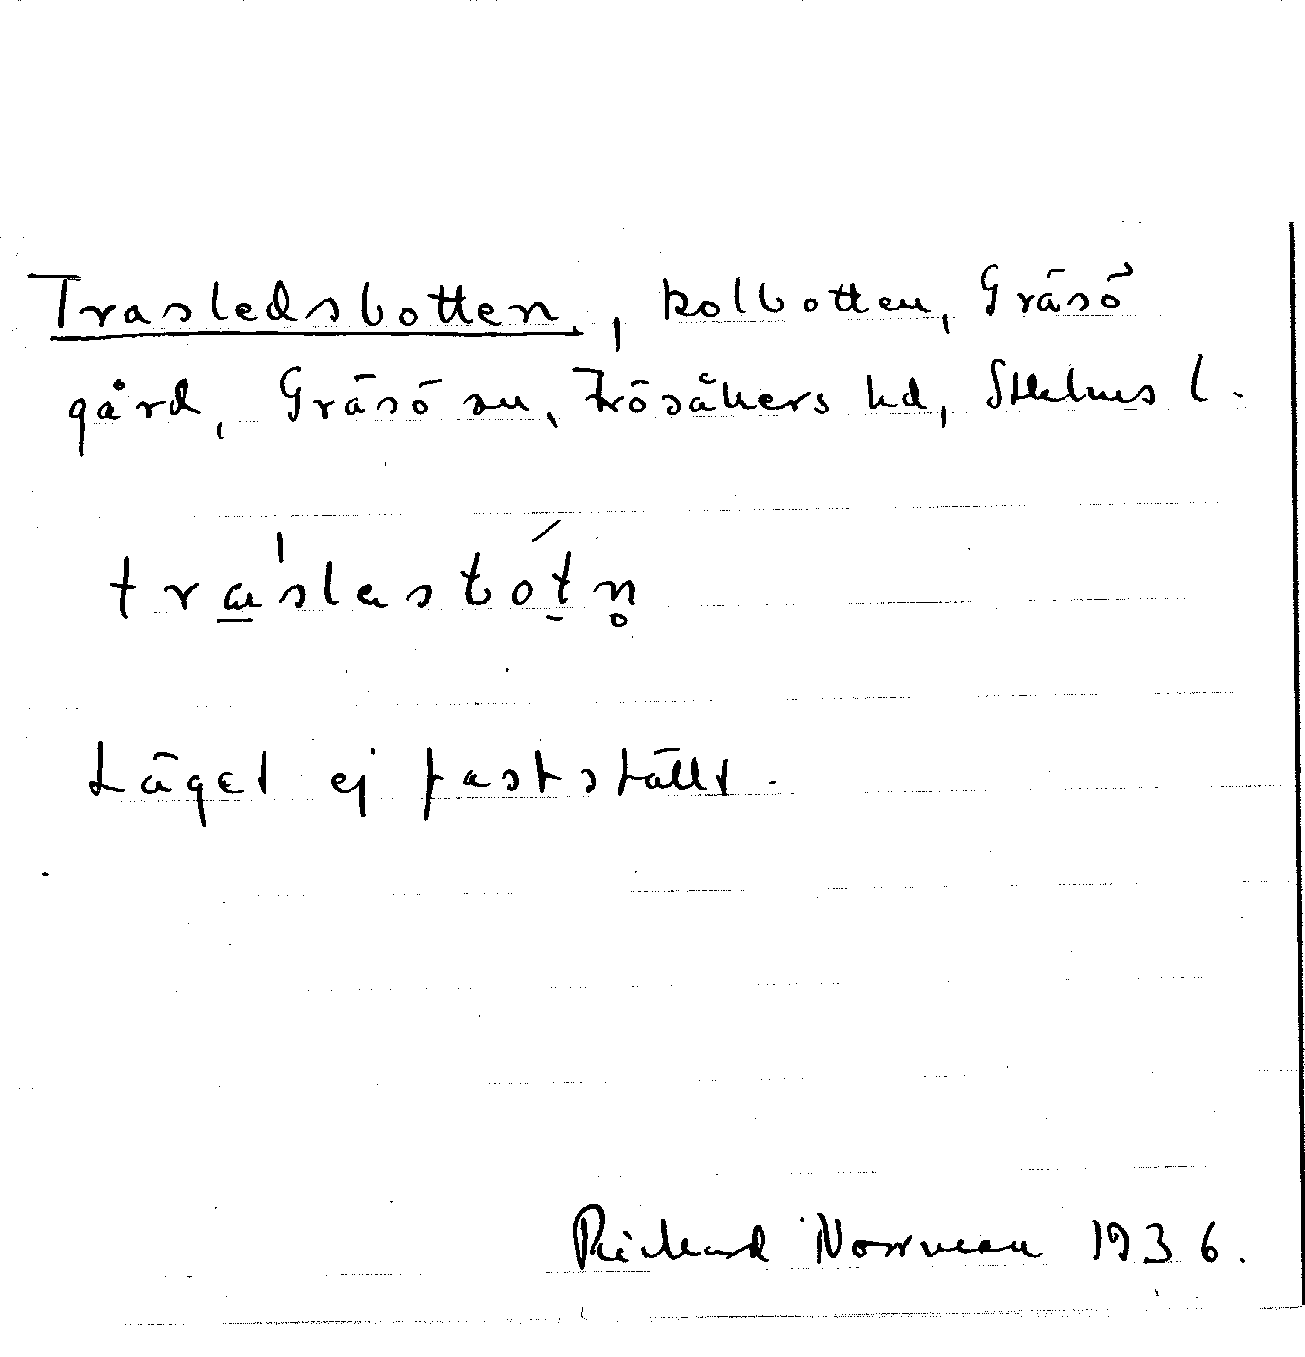 Trasledsbotten, kolbotten, Gräsö
gård, Gräsö sn, Frösåkers hd, Sthlms l.
traslasbótn̥
Läget ej fastställt.
Richard Norrman 1936.